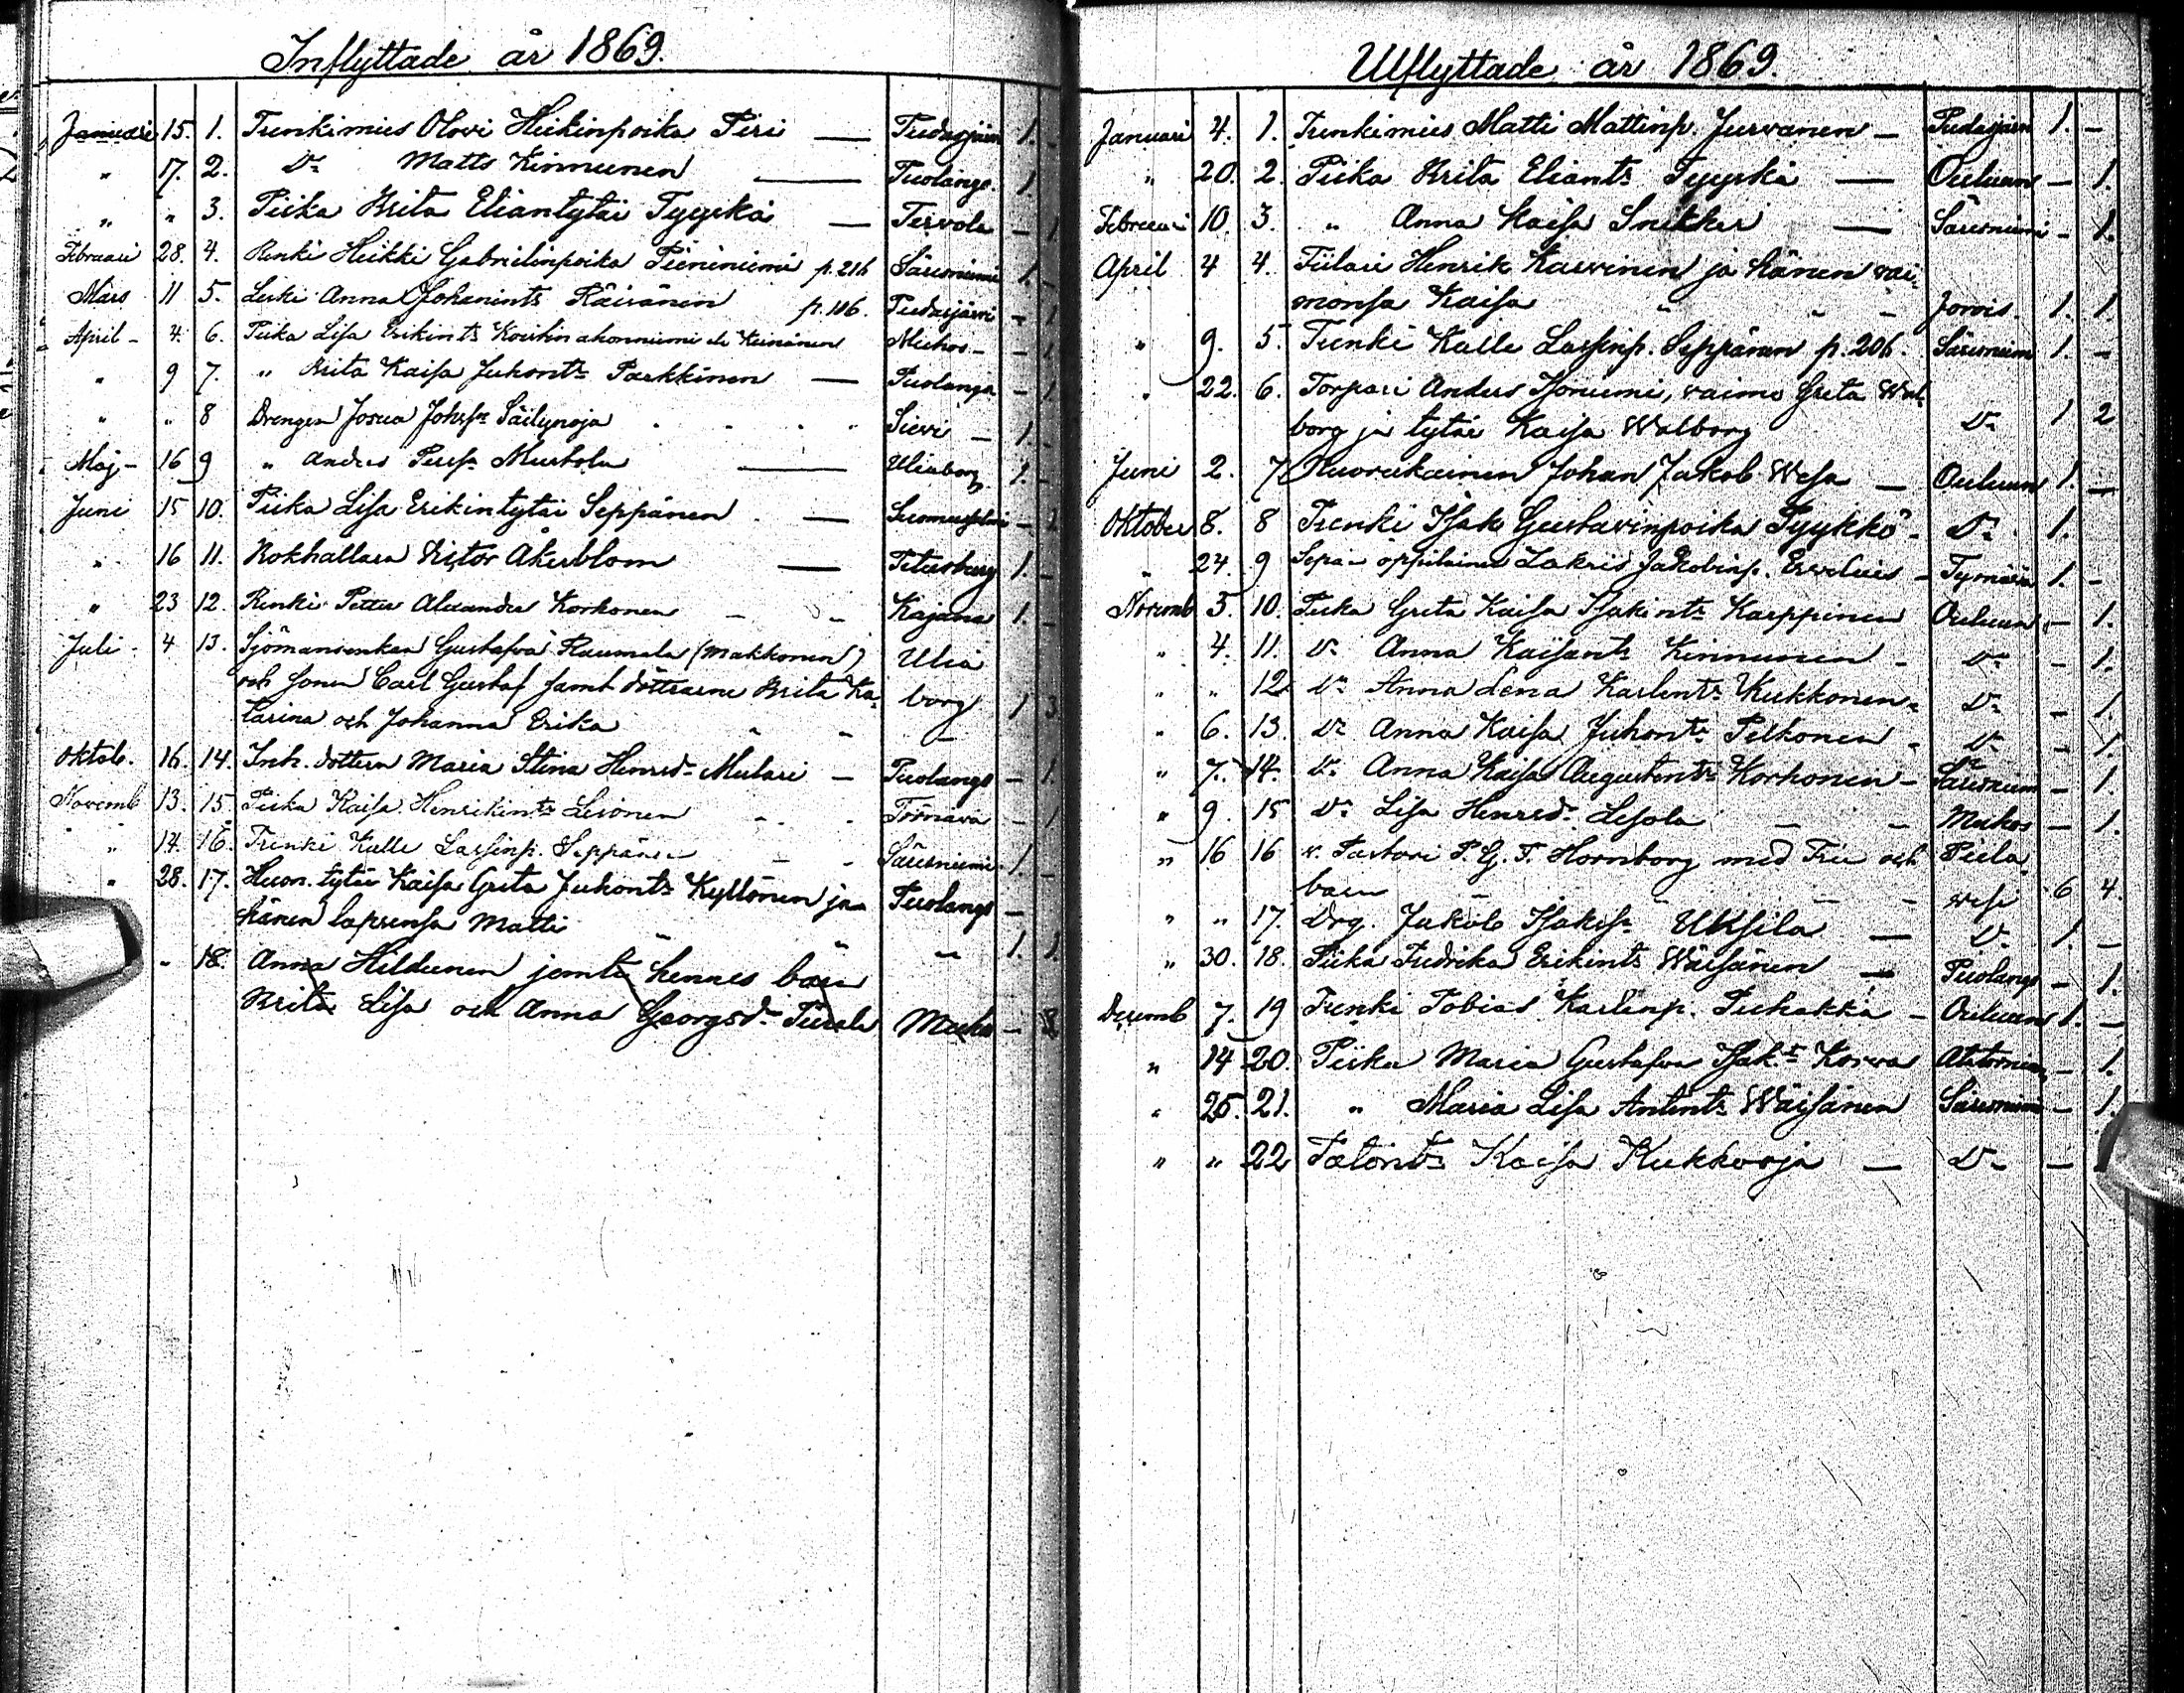 Inflyttade år 1869.
Januari 15. 1. Trenkimies Olovi Heikinpoika Piri — Pudasjärvi 1. -
" 17. 2. Do Matts Kinnunen — Puolango. 1.
" " 3. Piika Brita Eliantytär Tyyskä — Tervola - 1
Februari 28. 4. Renki Heikki Gabrielinpoika Pieniniemi p. 216 Säresniemi 1. -
Mars 11 5. Leski Anna Johanints Räisänen p. 106. Pudasjärvi - 1
April - 4. 6. Piika Lisa Erikints Keinänen Muhos - - 1
" 9 7. " Brita Kaisa Juhonts Parkkinen — Puolanga - 1.
" " 8 Drengen Josua Johsn Säilynoja Sievi - 1. -
Maj - 16 9 " Anders Persn Mustola — Uleaborg 1. -
Juni 15 10. Piika Lisa Erikintytär Seppänen — Suomusjalmi - 1
" 16 11. Bokhållaren Viktor Åkerblom — Petersburg 1. -
" 23 12. Renki Petter Alexander Korhonen - - Kajana 1. -
Juli - 4 13. Sjömansenkan Gustafva Raumala (Makkonen) Uleå
och sonen Carl Gustaf samt döttrarne Brita Ka= borg 1 3
tarina och Johanna Erika
Oktob. 16. 14. Inh. dottern Maria Stina Henrsd. Mulari — Puolango - 1.
Novemb 13. 15. Piika Kaisa Henrikints Lesonen Törnävä - 1
" 14. 16. Trenki Kalle Lassinp. Seppänen - Säresniemi 1. -
" 28. 17. Huon. tytär Kaisa Greta Juhonts Kyllönen ja Puolango -
hänen lapsensa Matti 1. 1.
- 18. Anna Heldunen jemte hennes barn
Brita Lisa och Anna Georgsd. Muhos - 3
Utflyttade år 1869.
Januari 4. 1. Trenkimies Matti Mattinp. Jurvanen — Pudasjärvi 1. -
" 20. 2. Piika Brita Eliants Tyyskä — Ouluun — 1.
Februari 10. 3. " Anna Kaisa Snikker — Säresniemi - 1.
April 4 4. Henrik Karvinen ja hänen vai=
monsa Kaisa " - - Jorois - 1. 1.
" 9. 5. Trenki Kalle Lassinp. Seppänen p. 206. Säresniemi 1. -
" 22. 6. Torpari Anders Isoniemi, vaimo Greta Wal=
borg ja tytär Kaisa Walborg Do 1 2
Juni 2. 7 Nuorukainen Johan Jakob Wesa — Ouluun 1. -
Oktober 8. 8 Trenki Isak Gustavinpoika Tyykkö - Do 1.
" 24. 9 Sepän oppilainen Zakris Jakobinp. Ervelius - Tyrnävä 1. -
Novemb 3. 10. Piika Greta Kaisa Isakints Karppinen Ouluun - 1.
" 4. 11. Do Anna Kaisants Kinnunen - Do - 1.
" " 12 Do Anna Lena Karlints Kukkonen - Do - 1.
" 6. 13. Do Anna Kaisa Juhonts Pelkonen - Do - 1.
" 7. 14. Do Anna Kaisa Augustints Korhonen - Säresniemi - 1.
" 9. 15 Do Lisa Henrsd. Lesola - - Muhos - 1.
" 16 16 v. Pastori P. G. F. Hornborg med Fru och Piela
barn - - - vesi 6 4.
" " 17. Drg. Jakob Isaksn Uksila — Do 1. -
" 30. 18. Piika Fredrika Erikints Wäisänen — Puolango - 1.
Decemb 7. 19 Trenki Tobias Karlinp. Puhakka - Ouluun 1. -
" 14 20. Piika Maria Gustafva Isak.ts Korva Alatornion - 1.
" 25. 21. " Maria Lisa Antints Wäisänen Säresniemi - 1.
" " 22 Talonts Kaisa Kukkooja — Do —